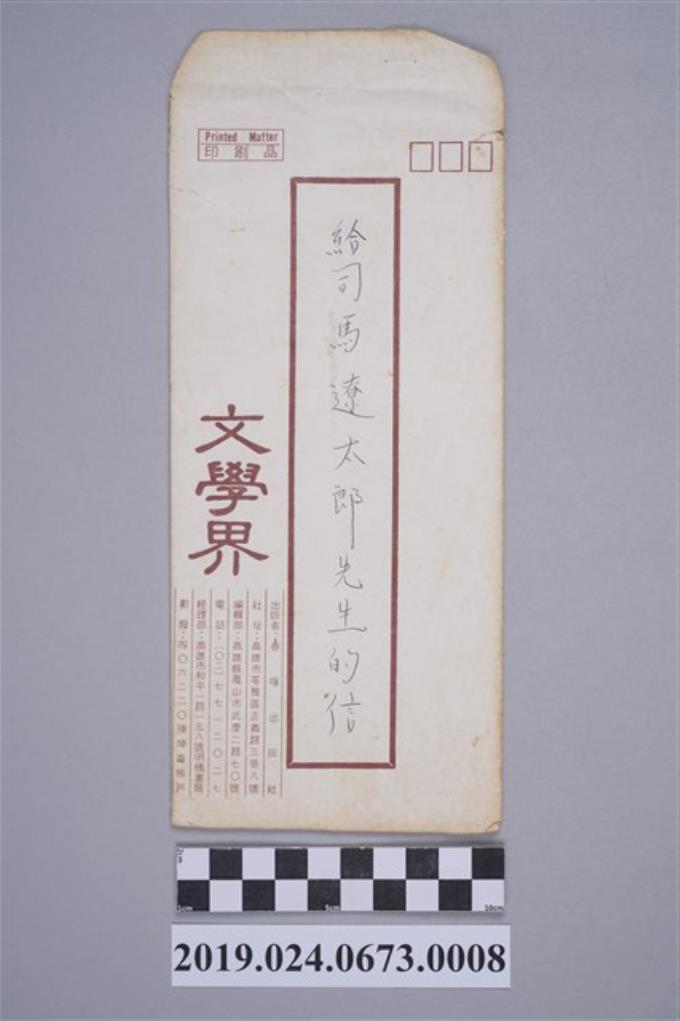 Printed Matter
印刷品
給司馬遼太郎先生的信
文學界
出版者：春暉出版社
社址：高雄市苓雅區正義路三巷八號
編輯部：高雄縣鳳山市武慶二路七〇號
電話：（〇二）七七一二〇二七
經理部：高雄市和平一路一五八號
劃撥：四〇六二二〇陳坤崙帳戶
2cm
1cm
5cm
10cm
2019.024.0673.0008